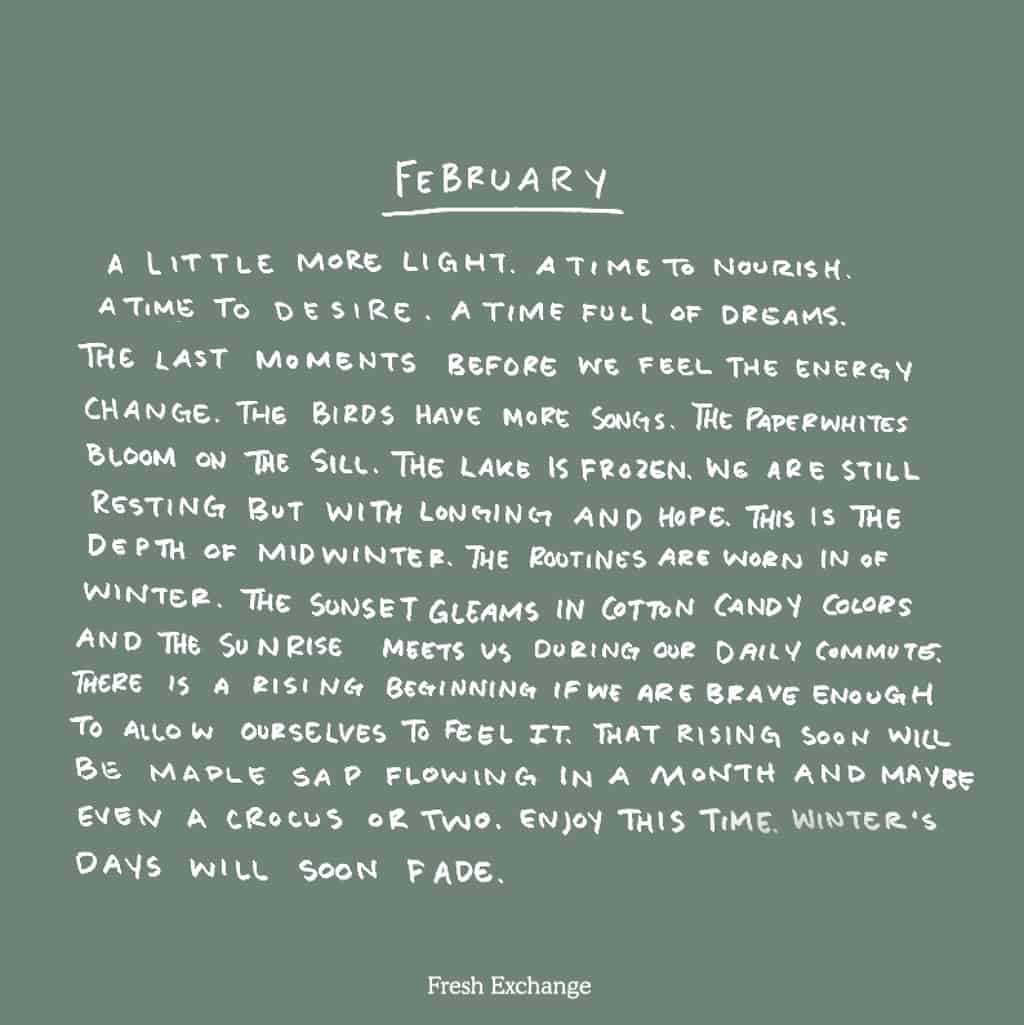 FEBRUARY
A LITTLE MORE LIGHT. A TIME TO NOURISH.
A TIME TO DESIRE. A TIME FULL OF DREAMS.
THE LAST MOMENTS BEFORE WE FEEL THE ENERGY
CHANGE. THE BIRDS HAVE MORE SONGS. THE PAPERWHITES
BLOOM ON THE SILL. THE LAKE IS FROZEN. WE ARE STILL
RESTING BUT WITH LONGING AND HOPE. THIS IS THE
DEPTH OF MIDWINTER. THE ROUTINES ARE WORN IN OF
WINTER. THE SUNSET GLEAMS IN COTTON CANDY COLORS
AND THE SUNRISE MEETS US DURING OUR DAILY COMMUTE.
THERE IS A RISING BEGINNING IF WE ARE BRAVE ENOUGH
TO ALLOW OURSELVES TO FEEL IT. THAT RISING SOON WILL
BE MAPLE SAP FLOWING IN A MONTH AND MAYBE
EVEN A CROCUS OR TWO. ENJOY THIS TIME. WINTER'S
DAYS WILL SOON FADE.
Fresh Exchange